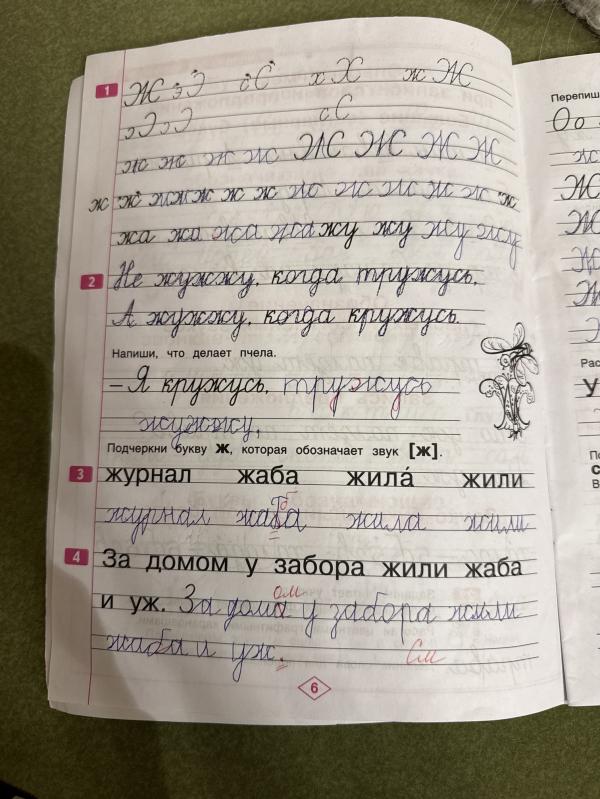 1 Ж Э э Э с С х Х ж Ж
э Э э Э с С
ж ж ж ж Ж Ж Ж Ж
ж ж жжж ж ж ж ж ж ж ж ж
жа жа жа жажу жу жу жу
2 Не жужжу, когда тружусь,
А жужжу, когда кружусь.
Напиши, что делает пчела.
– Я кружусь, тружусь
жужжу,
Подчеркни букву ж, которая обозначает звук [ж].
3 журнал жаба жила́ жили
журнал жаба жила жили
б
4 За домом у забора жили жаба
и уж. За дома у забора жили
ом
жаба и уж.
См
6
Перепиши
Оо
Рас
У
По
с
В